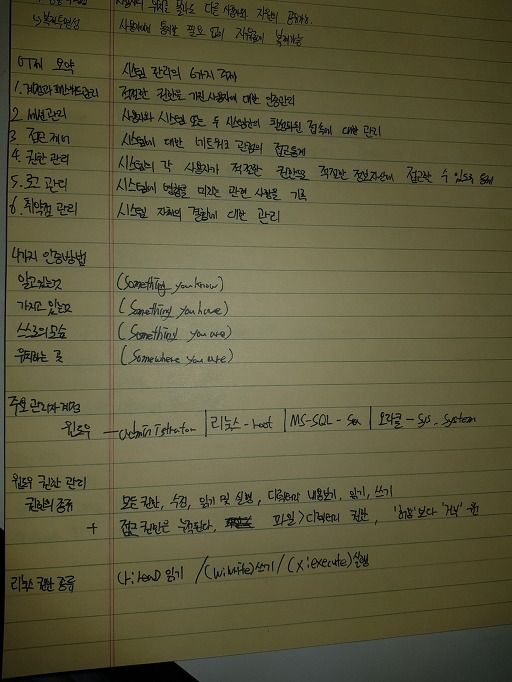 사용자의 위치를 몰라도 다른 사용자와 자원의 공유가능
↳ 복제투명성 사용자에 통지할 필요 없이 자유롭게 복제가능
이제 요약 시스템 관리의 6가지 주제
1. 계정과 패스워드관리 적절한 권한을 가진 사용자에 대한 인증관리
2. 세션 관리 사용자와 시스템 또는 두 시스템간의 활성화된 접속에 대한 관리
3. 접근 제어 시스템에 대한 네트워크 관점의 접근통제
4. 권한 관리 시스템의 각 사용자가 적절한 권한으로 적절한 정보자산에 접근할 수 있도록 통제
5. 로그 관리 시스템에 영향을 미치는 관련 사항을 기록
6. 취약점 관리 시스템 자체의 결함에 대한 관리
4가지 인증방법
알고있는것 (Something you know)
가지고 있는것 (Something you have)
스스로의 모습 (Something you are)
위치하는 곳 (Somewhere you are)
주요 관리자 계정
윈도우 - administrator | 리눅스 - root | MS-SQL - Sa | 오라클 - Sys, System
윈도우 권한 관리
권한의 종류 모든 권한, 수정, 읽기 및 실행, 디렉터리 내용보기, 읽기, 쓰기
+ 접근 권한은 누적된다, 파일 > 디렉터리 권한, '허용'보다 '거부' 우선
리눅스 권한 종류 (r:read) 읽기 / (w:write) 쓰기 / (x:execute) 실행